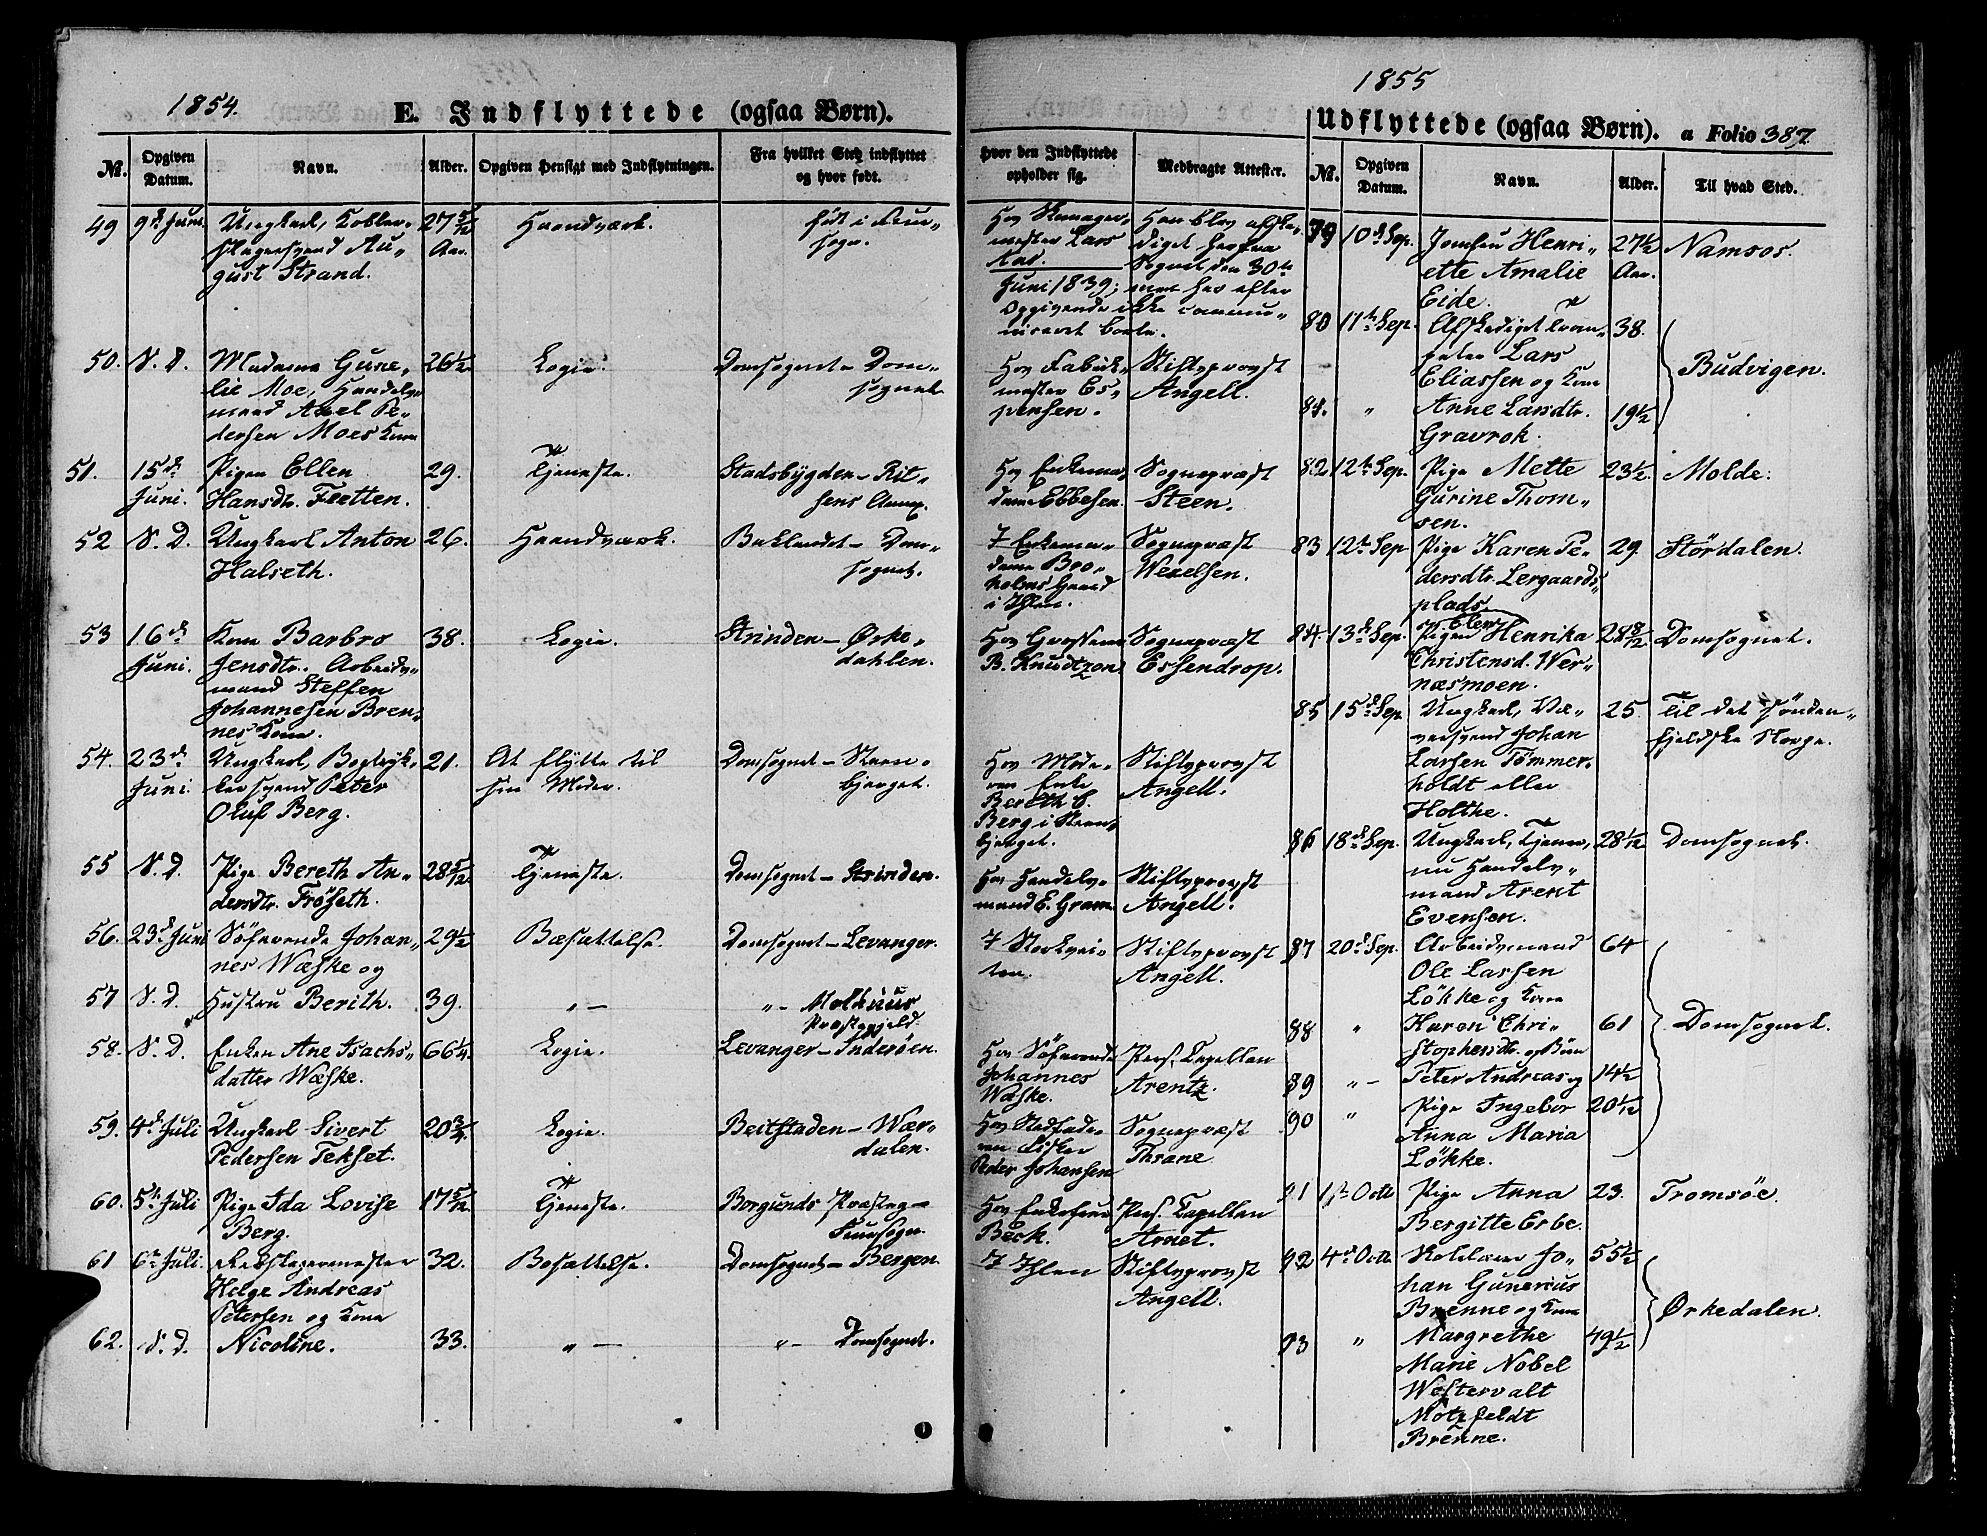 1854.
E. Indflyttede (ogsaa Børn).
No. Opgiven Datum. Navn. Alder. Opgiven Hensigt med Indflytningen. Fra hvilket Sted indflyttet og hvor født. Hvor den Indflyttede opholder sig. Medbragte Attester.
49 9de Juni. Ungkarl, Kobber-
slagersvend Au-
gust Strand. 27 5/12 Aar. Haandværk. født i Frue-
sogn.
Juni 1839; men har efter
Opgivende ikke commu-
niceret borte.
50. S. D. Madame Gune-
lie Moe, Handels-
mand Axel Pe-
dersen Moes Kone 26 1/2 Logie. Domsognet – Dom-
sognet. Hos Fabrik-
mester Es-
pensen. Stiftsprovst
Angell.
51. 15de
Juni. Pigen Ellen
Hansdtr. Fletten. 29. Tjeneste. Stadsbygden – Rit-
sens Annex. Hos Enkema-
dame Ebbesen. Sognepræst
Steen.
52 S. D. Ungkarl Anton
Halseth. 26. Haandværk. Baklandet – Dom-
sognet. I Enkema-
dame Boo-
holms Gaard
i Ihlen. Sognepræst
Wexelsen.
53 16de
Juni. Kone Barbro
Jensdtr. Arbeids-
mand Steffen
Johannesen Bren-
nes Kone. 38. Logie. Strinden – Ørke-
dahlen. Hos Grosserer
B. Knudtzon. Sognepræst
Essendrop.
54. 23de
Juni. Ungkarl, Bogtryk-
kersvend Peter
Oluf Berg. 21. At flytte til
sin Moder. Domsognet – Steen-
bjerget. Hos Mode-
ren Enke
Bereth C.
Berg i Steen-
bjerget. Stiftsprovst
Angell.
55 S. D. Pige Bereth An-
dersdtr. Fröseth. 28 5/12. Tjeneste. Domsognet – Strinden. Hos Handels-
mand E. Gram. Stiftsprovst
Angell.
56. 23de Juni Søfarende Johan-
nes Wæske og 29 1/2 Bosættelse. Domsognet – Levanger. I Storkvei-
ten. Stiftsprovst
Angell.
57 S. D. Hustru Berith. 39. " – " – Molhuus
Præstegjeld.
58. S. D. Enken Ane Isachs-
datter Wæske. 66 1/4. Logie. Levanger – Inderøen. Hos Søfarende
Johannes
Wæske. Pers. Capellan
Arentz.
59. 4de Juli Ungkarl Sivert
Pedersen Tekset. 20 3/4. Logie. Beitstaden – Wær-
dalen. Hos Stedfade-
ren Fisker
Peder Johansen Sognepræst
Thrane.
60. 5te Juli Pige Ida Lovise
Berg. 17 5/12 Tjeneste. Borgunds Præsteg –
Fruesogn. Hos Enkefrue
Beck. Pers. Capellan
Arnet.
61 6te Juli. Rebslagermester
Helge Andreas
Petersen og Kone 32. Bosættelse. Domsognet – Bergen. I Ihlen Stiftsprovst
Angell.
62. S. D. Nicoline. 33. " – " – Domsognet.
1855
Udflyttede (ogsaa Børn). a Folio 387.
No. Opgiven Datum. Navn. Alder. Til hvad Sted.
79 10de Sep. Jomfru Henri-
ette Amalie
Eide. 27 1/2
Aar. Namsos.
80 11te Sep. Afskediget Trom-
peter Lars
Eliassen og Kone 38. Budvigen.
81. " Anne Larsdtr.
Gravrok. 19 1/2
82 12te Sep. Pige Mette
Gurine Thom-
sen. 23 1/2. Molde.
83 12te Sep Pige Karen Pe-
dersdtr. Lergaards-
plads. 29. Stördalen.
84. 13de Sep. Pigen Elen Henrika
Christensd. Wer-
næsmoen. 28 8/12 Domsognet.
85 15de Sep Ungkarl, Væ-
versvend Johan
Larsen Tömmer-
holdt eller
Holthe. 25. Til det sönden-
fjeldske Norge.
86 18de Sep. Ungkarl, Tjener,
nu Handels-
mand Arent
Evensen. 28 1/12 Domsognet.
87 20de Sep. Arbeidsmand
Ole Larsen
Løkke og Kone 64 Domsognet.
88 " Karen Chri-
stophersdtr. og Børn 61
89 " – Peter Andreas og 14 1/2
90 " Pige Ingebor
Anna Maria
Løkke. 20 1/12
91 1ste Octb Pige Anna
Bergitte Erbe. 23. Tromsöe.
92 4de Octb Jo-
han Gunerius
Brenne og Kone 55 1/2 Ørkedalen.
93 " Margrethe
Marie Nobel
Westervalt
Motzfeldt
Brenne. 49 1/2